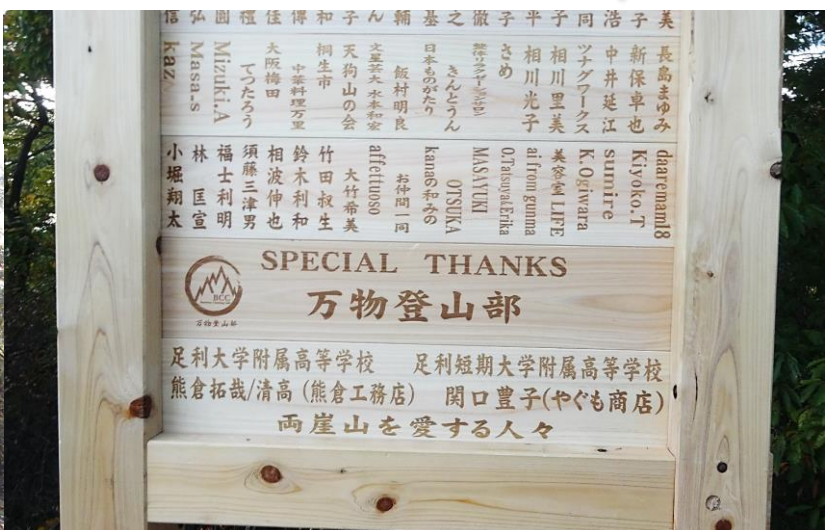 長島まゆみ
新保卓也
中井延江
ツナグワークス
相川里美
相川光子
さめ
きんとうん
日本ものがたり
飯村明良
天狗山の会
桐生市
中華料理万里
大阪梅田
てつたろう
Mizuki.A
Masa-s
kaz
daaremaml8
Kiyoko.T
sumire
K.Ogiwara
美容室 LIFE
ai from gunma
O.Tatsuya Erika
MASAYUKI
OTSUKA
kanaの和みの
お仲間一同
affettuoso
大竹希美
竹田叔生
鈴木利和
相波伸也
須藤三津男
福士利明
林 匡宣
小堀翔太
SPECIAL THANKS
BCC
万物登山部
万物登山部
足利大学附属高等学校 足利短期大学附属高等学校
熊倉拓哉/清高 (熊倉工務店) 関口豊子(やぐも商店)
両崖山を愛する人々